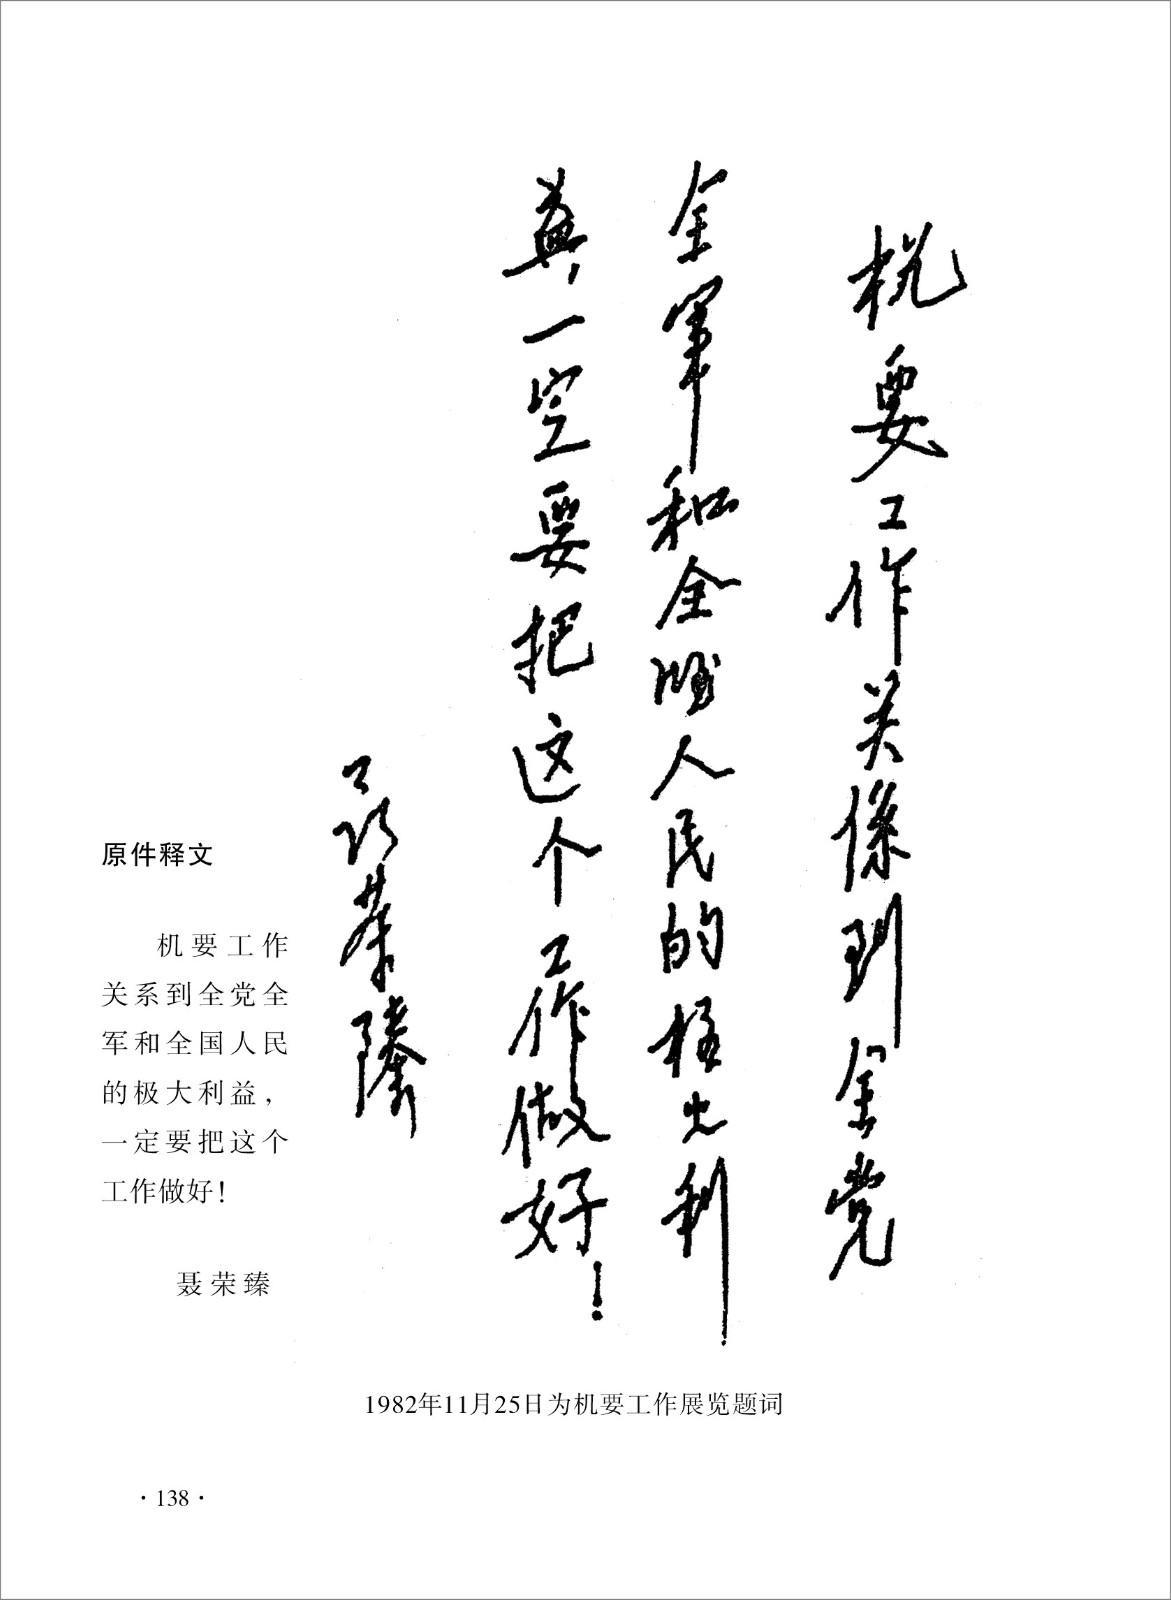 机要工作关係到全党
全军和全国人民的极大利
益,一定要把这个工作做好!
聂荣臻
原件释文
机要工作
关系到全党全
军和全国人民
的极大利益，
一定要把这个
工作做好！
聂荣臻
1982年11月25日为机要工作展览题词
·138·